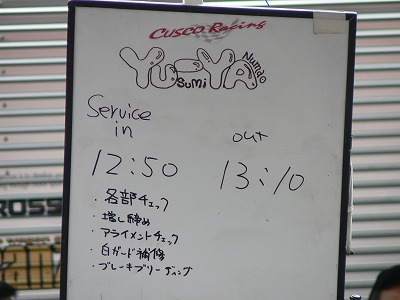 CUSCO Racing
YU-YA
Sumi
Numao
Service
in
out
12:50
13:10
・各部チェック
・増し締め
・アライメントチェック
・白ガード補修
・ブレーキブリーディング
ROSS